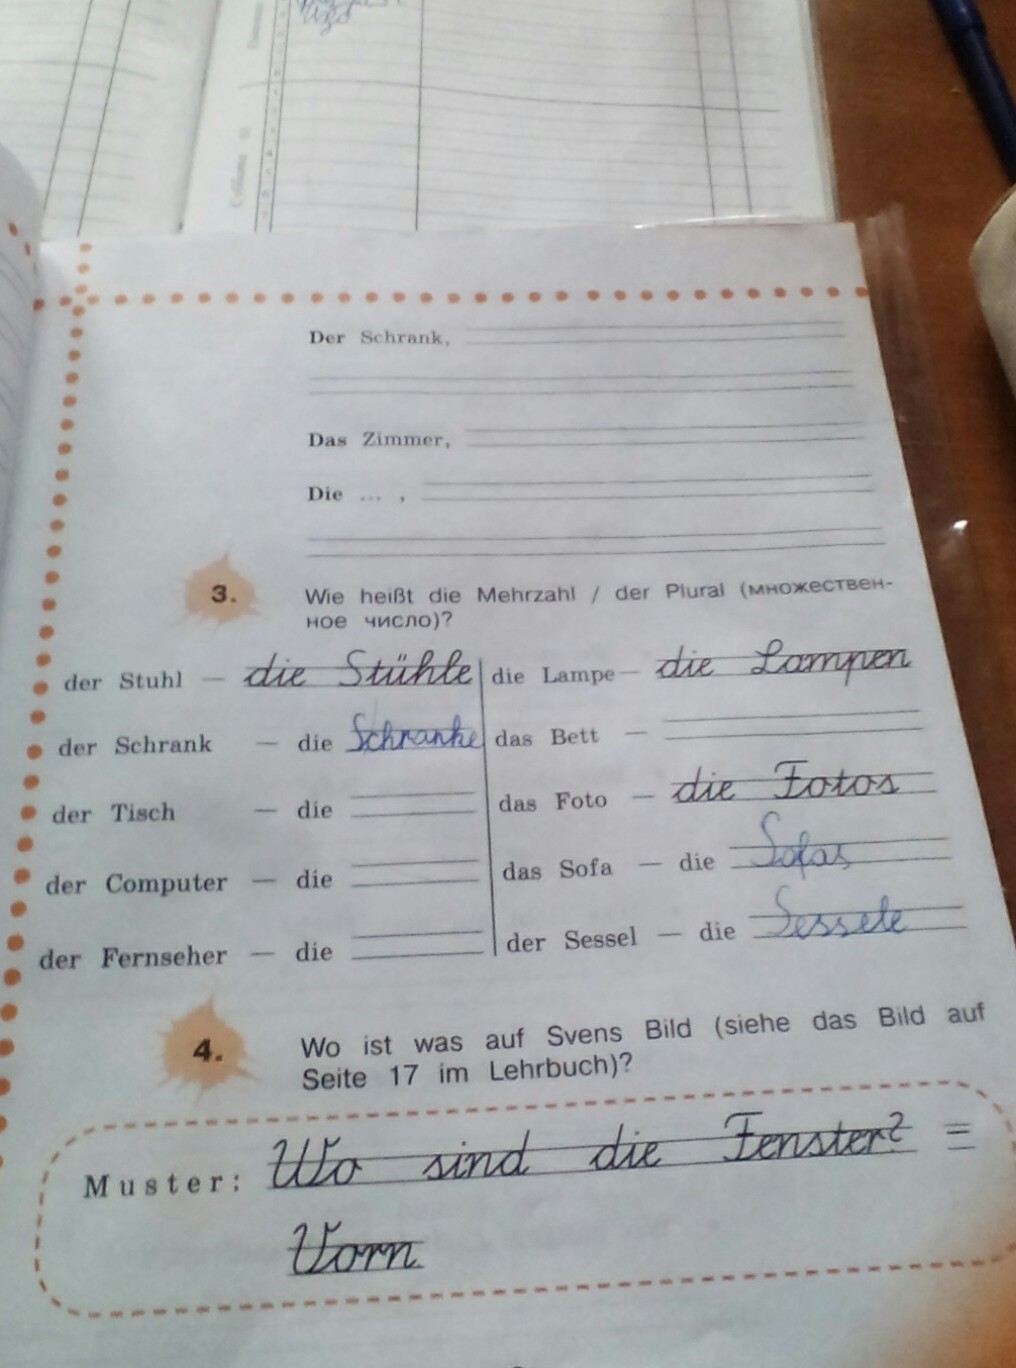 Суббота
Der Schrank,
Das Zimmer,
Die ... ,
3. Wie heißt die Mehrzahl / der Plural (множествен-
ное число)?
der Stuhl — die Stühle
die Lampe — die Lampen
der Schrank — die Schranke
das Bett —
der Tisch — die
das Foto — die Fotos
der Computer — die
das Sofa — die Sofas
der Fernseher — die
der Sessel — die Sessele
4. Wo ist was auf Svens Bild (siehe das Bild auf
Seite 17 im Lehrbuch)?
Muster: Wo sind die Fenster? =
Vorn